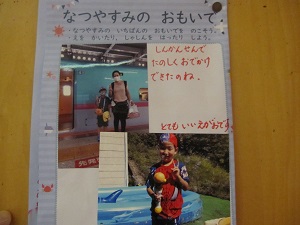 なつやすみの おもいで
・なつやすみの いちばんの おもいでを のこそう。
えを かいたり、しゃしんを はったり しよう。
しんかんせんで
たのしくおでかけ
できたのね。
とても いいえがおです。